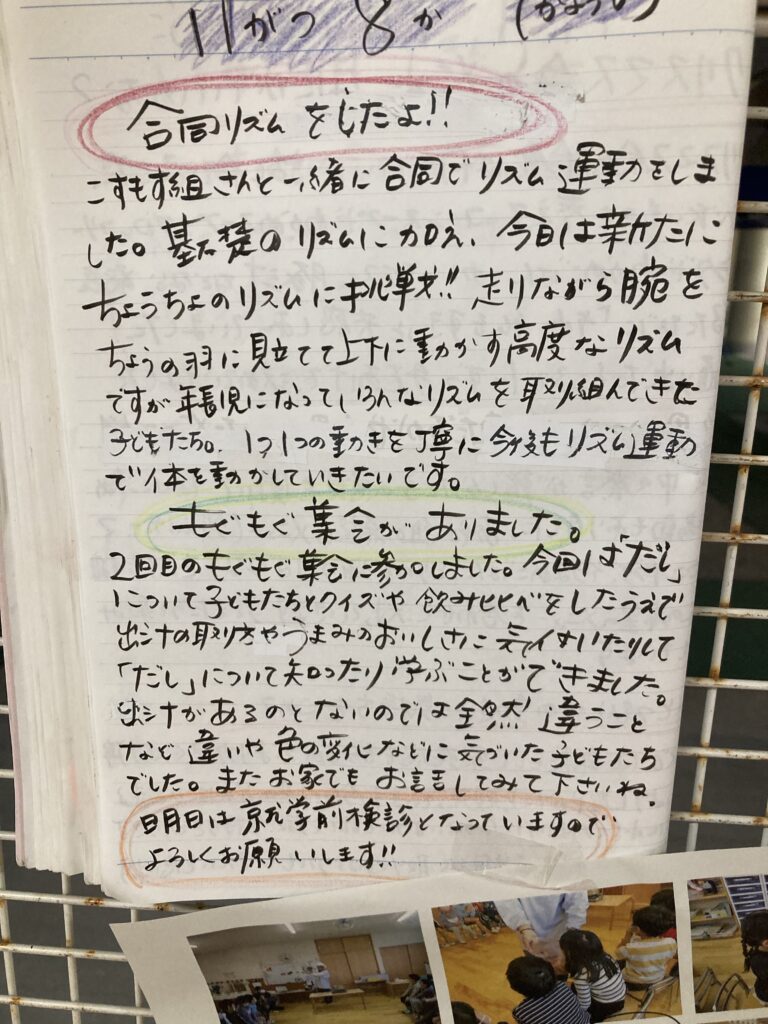 11がつ 8か (かようび)
合同リズムをしたよ!!
こすもす組さんと一緒に合同でリズム運動をしま
した。基礎のリズムに加え、今日は新たに
ちょうちょのリズムに挑戦!! 走りながら腕を
ちょうの羽に見立てて上下に動かす高度なリズム
ですが年長児になっていろんなリズムを取り組んできた
子どもたち。1つ1つの動きを丁寧に今後もリズム運動
で体を動かしていきたいです。
もぐもぐ集会がありました。
2回目のもぐもぐ集会に参加しました。今回は「だし」
について子どもたちとクイズや飲みヒヒベをしたうえで
出汁の取り方やうまみのおいしさに気付いたりして
「だし」について知ったり学ぶことができました。
出汁があるのとないのでは全然違うこと
など違いや色の変化などに気づいた子どもたち
でした。またお家でもお話してみて下さいね。
明日は就学前検診となっていますので
よろしくお願いします!!